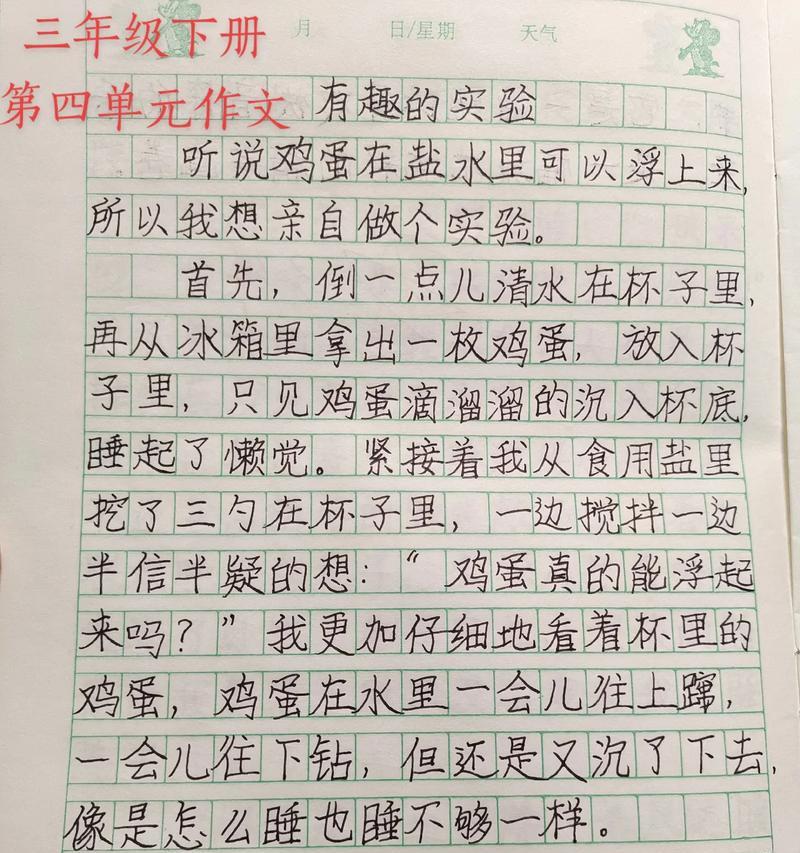 三年级下册
第四单元作文
月 日/星期 天气
有趣的实验
听说鸡蛋在盐水里可以浮上来,
所以我想亲自做个实验。
首先,倒一点儿清水在杯子里,
再从冰箱里拿出一枚鸡蛋,放入杯
子里,只见鸡蛋滴溜溜的沉入杯底,
睡起了懒觉。紧接着我从食用盐里
挖了三勺在杯子里,一边搅拌一边
半信半疑的想:“鸡蛋真的能浮起
来吗?”我更加仔细地看着杯里的
鸡蛋,鸡蛋在水里一会儿往上蹿,
一会儿往下钻,但还是又沉了下去,
像是怎么睡也睡不够一样。